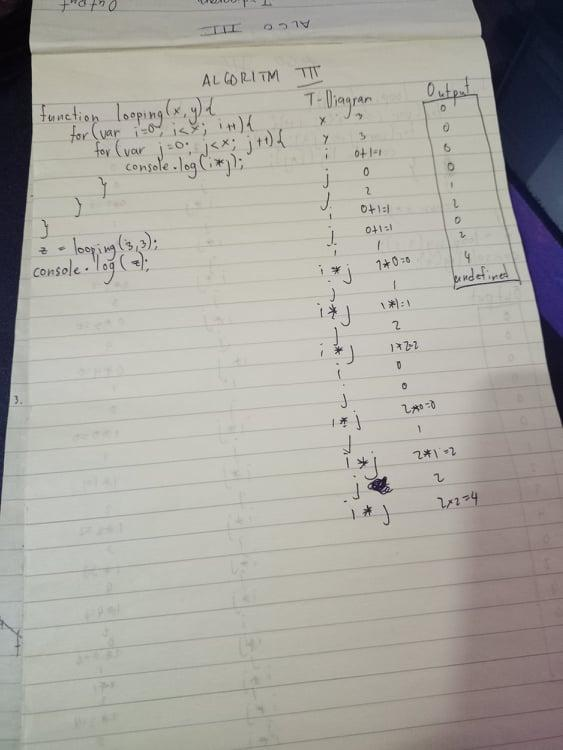 T-Diagram Output
ALGO III
ALGORITM III
function looping(x,y){
for(var i=0; i<x; i++){
for(var j=0; j<x; j++){
console.log(i*j);
}
}
}
z = looping(3,3);
console.log(z);
3.
T-Diagram
x 3
y 3
i 0+1=1
j 0
j 2
i 0+1=1
j 0+1=1
i 1
i * j 1*0=0
j 1
i * j 1*1=1
j 2
i * j 1*2=2
i 0
j 0
i * j 2*0=0
j 1
i * j 2*1=2
j 2
i * j 2*2=4
Output
0
0
0
0
1
2
0
2
4
undefined